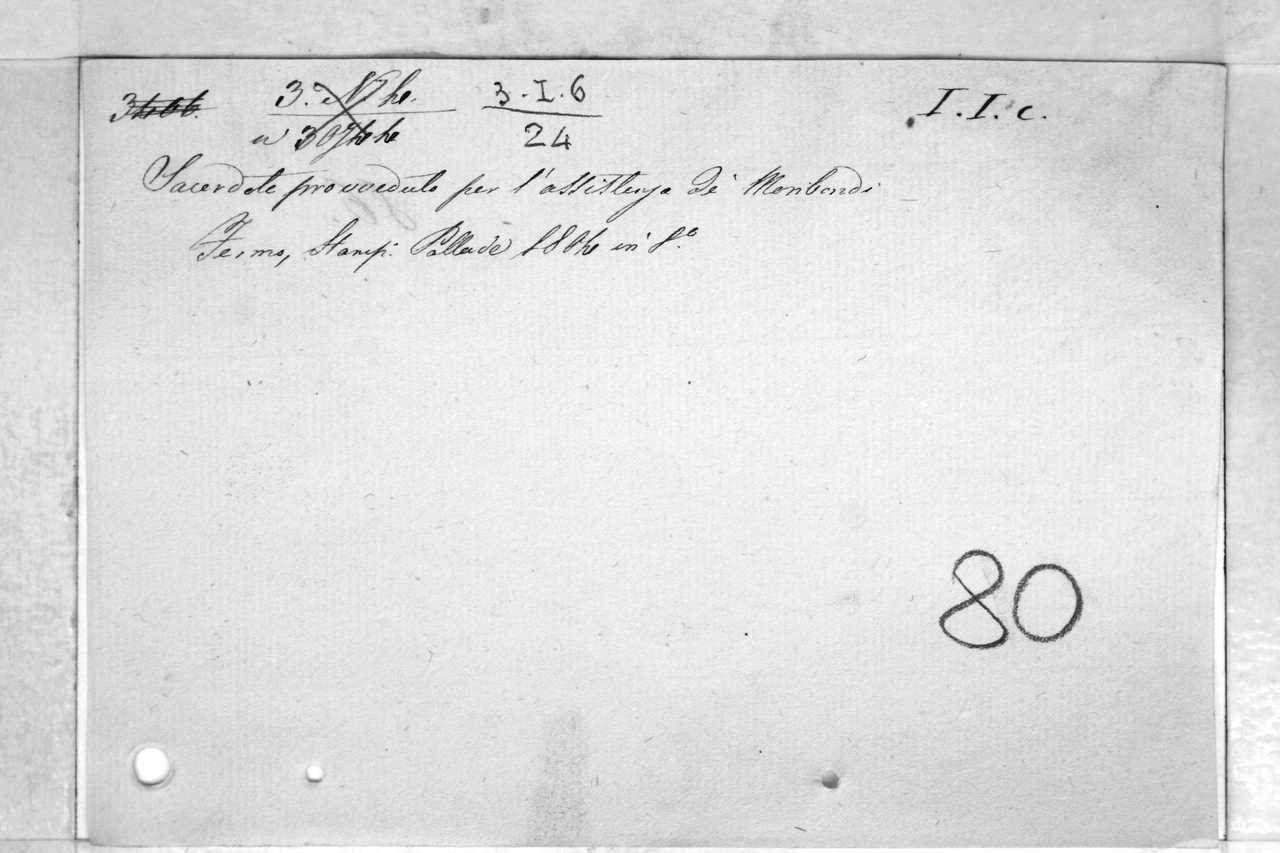 3. I. 6
24
I. I. c.
Sacerdote provveduto per l'assistenza de' Moribondi
Fermo, Stamp. Pallade in 8.º
80